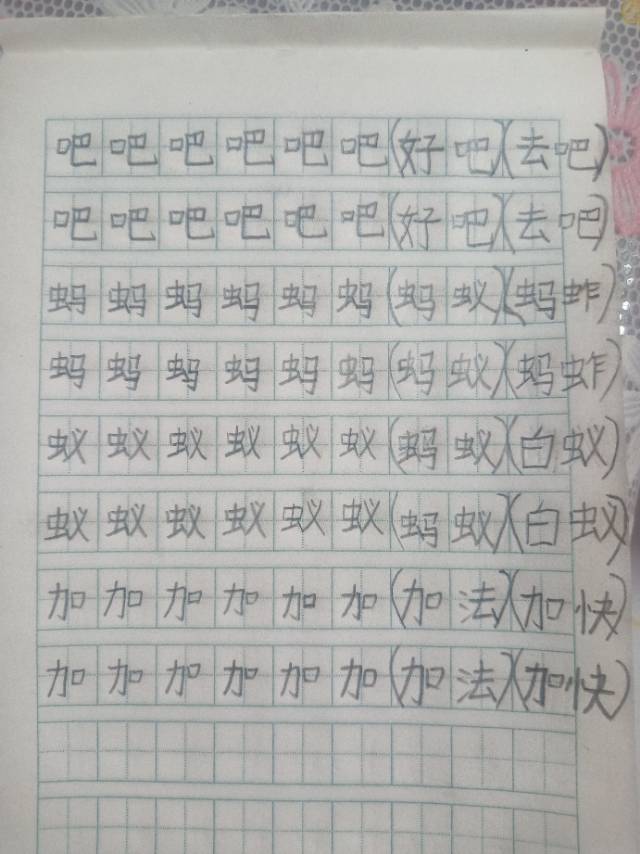 吧吧吧吧吧吧(好吧)(去吧)
吧吧吧吧吧吧(好吧)(去吧)
蚂蚂蚂蚂蚂蚂(蚂蚁)(蚂蚱)
蚂蚂蚂蚂蚂蚂(蚂蚁)(蚂蚱)
蚁蚁蚁蚁蚁蚁(蚂蚁)(白蚁)
蚁蚁蚁蚁蚁蚁(蚂蚁)(白蚁)
加加加加加加(加法)(加快)
加加加加加加(加法)(加快)